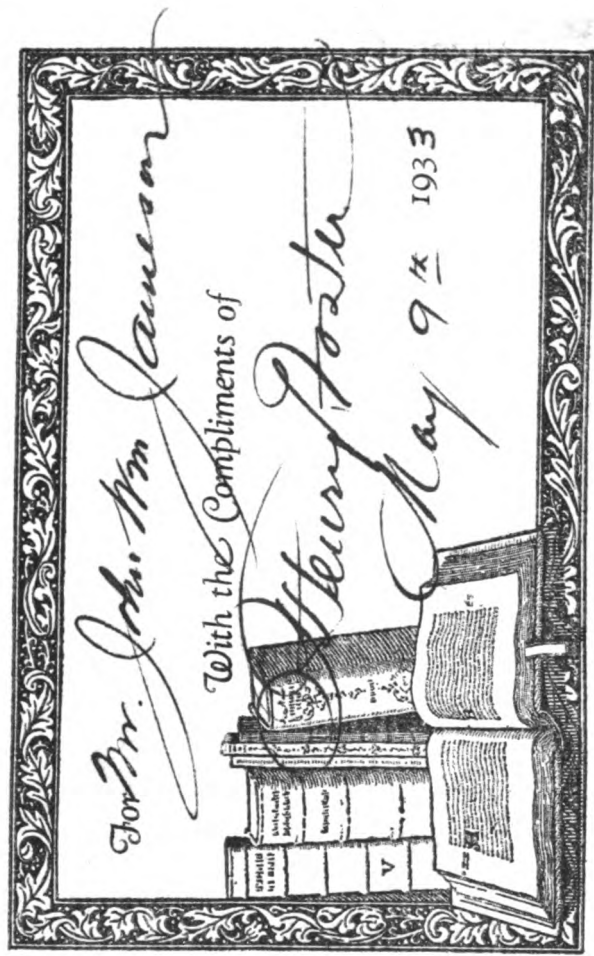 For Mr. John Wm Jameson
With the Compliments of
Henry Foster
May 9th 1933